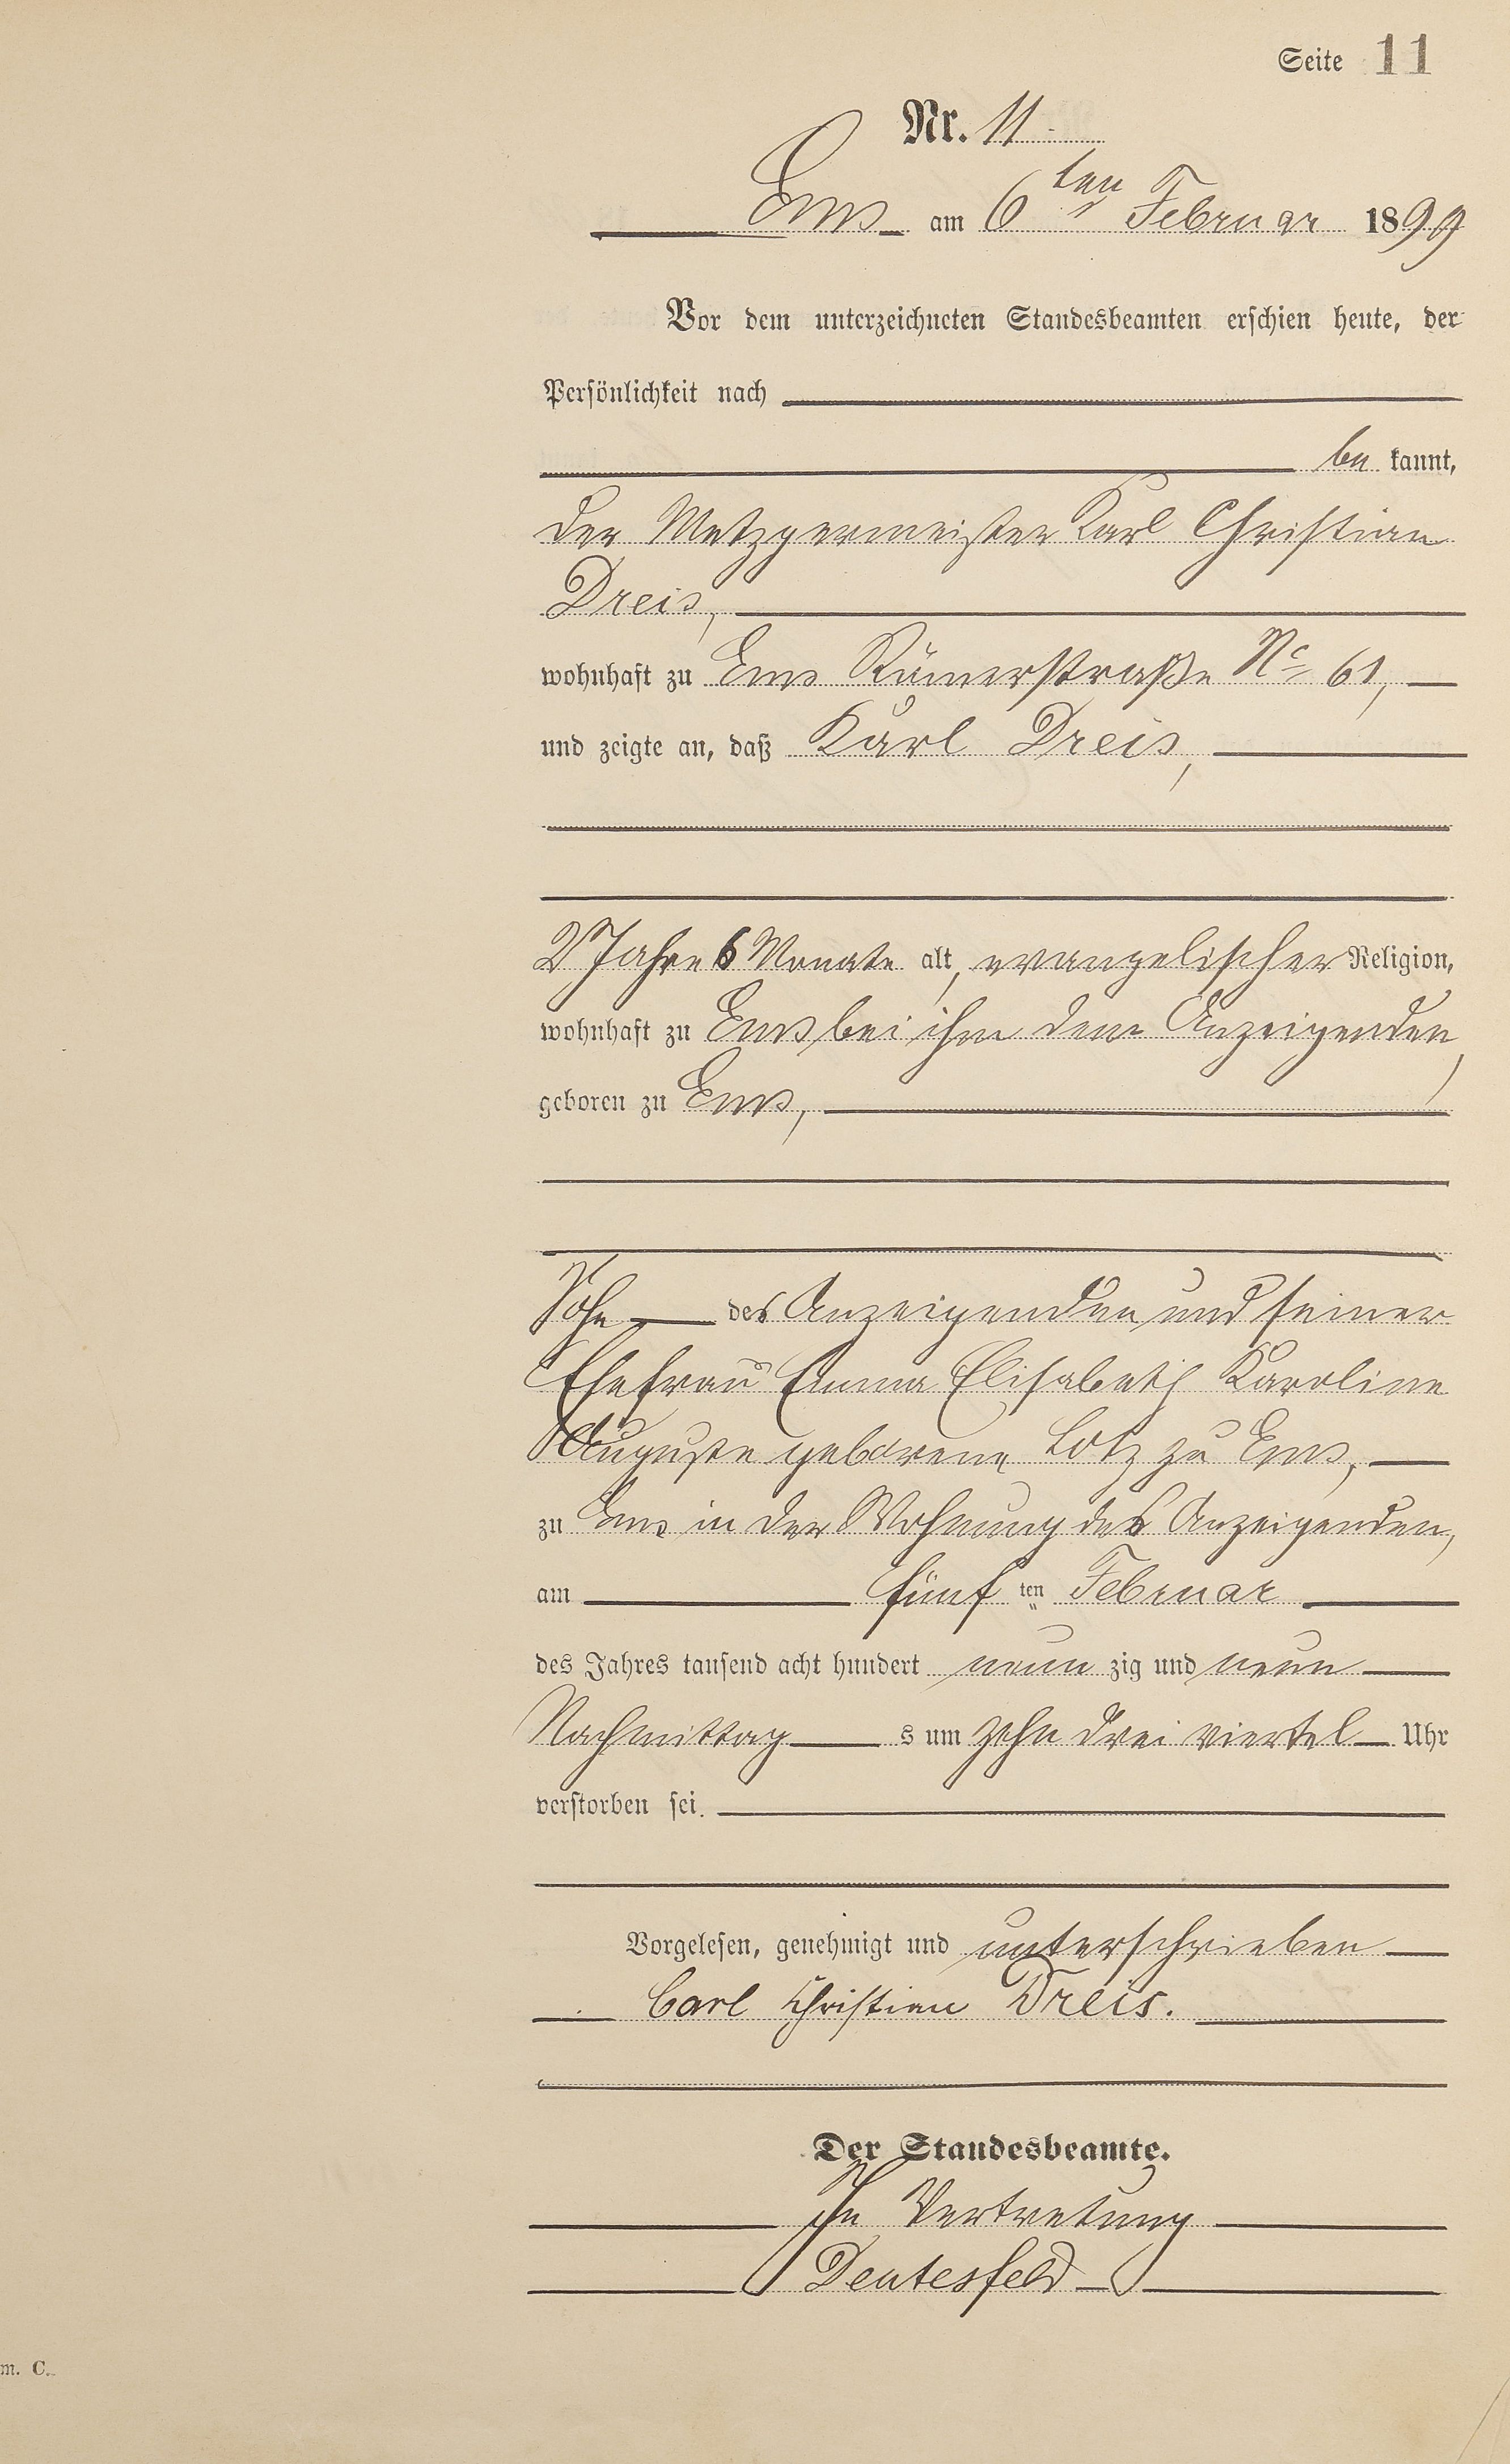 Seite 11
Nr. 11.
Ems am 6ten Februar 1899
Vor dem unterzeichneten Standesbeamten erschien heute, der
Persönlichkeit nach
be kannt,
der Metzgermeister Karl Christian
Dreis,
wohnhaft zu Ems Römerstraße No 61,
und zeigte an, daß Karl Dreis,
2 Jahre 6 Monate alt, evangelischer Religion,
wohnhaft zu Ems bei ihm dem Anzeigenden,
geboren zu Ems,
Sohn des Anzeigenden und seiner
Ehefrau Emma Elisabeth Karoline
Auguste geborene Lotz zu Ems,
zu Ems in der Wohnung des Anzeigenden,
am fünf ten Februar
des Jahres tausend acht hundert neun zig und neun
Nachmittag s um zehn drei viertel Uhr
verstorben sei.
Vorgelesen, genehmigt und unterschrieben
Carl Christian Dreis.
Der Standesbeamte.
In Vertretung
Deutesfeld
m. C.